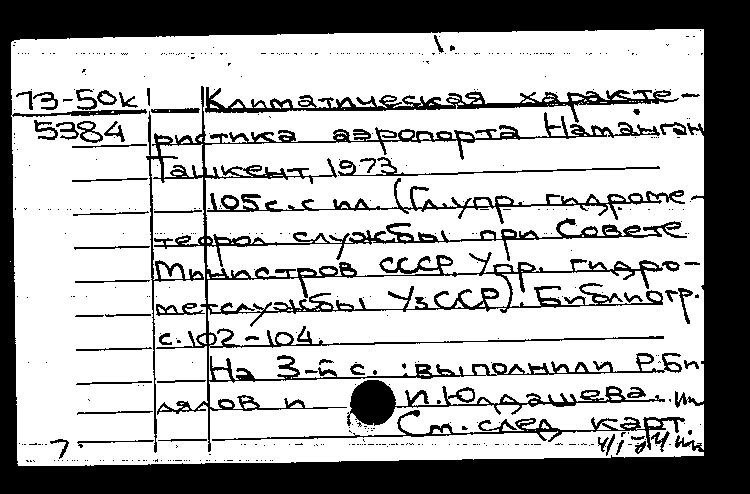 1.
73-50к Климатическая характе-
5384 ристика аэропорта Наманган
Ташкент, 1973.
105с. с ил. (Гл. упр. гидроме-
теорол службы при Совете
Министров СССР. Упр. гидро-
метслужбы УзССР). Библиогр.:
с. 102-104.
На 3-й с. : выполнили Р. Би-
лялов и И. Юлдашева.
См. след карт.
7.